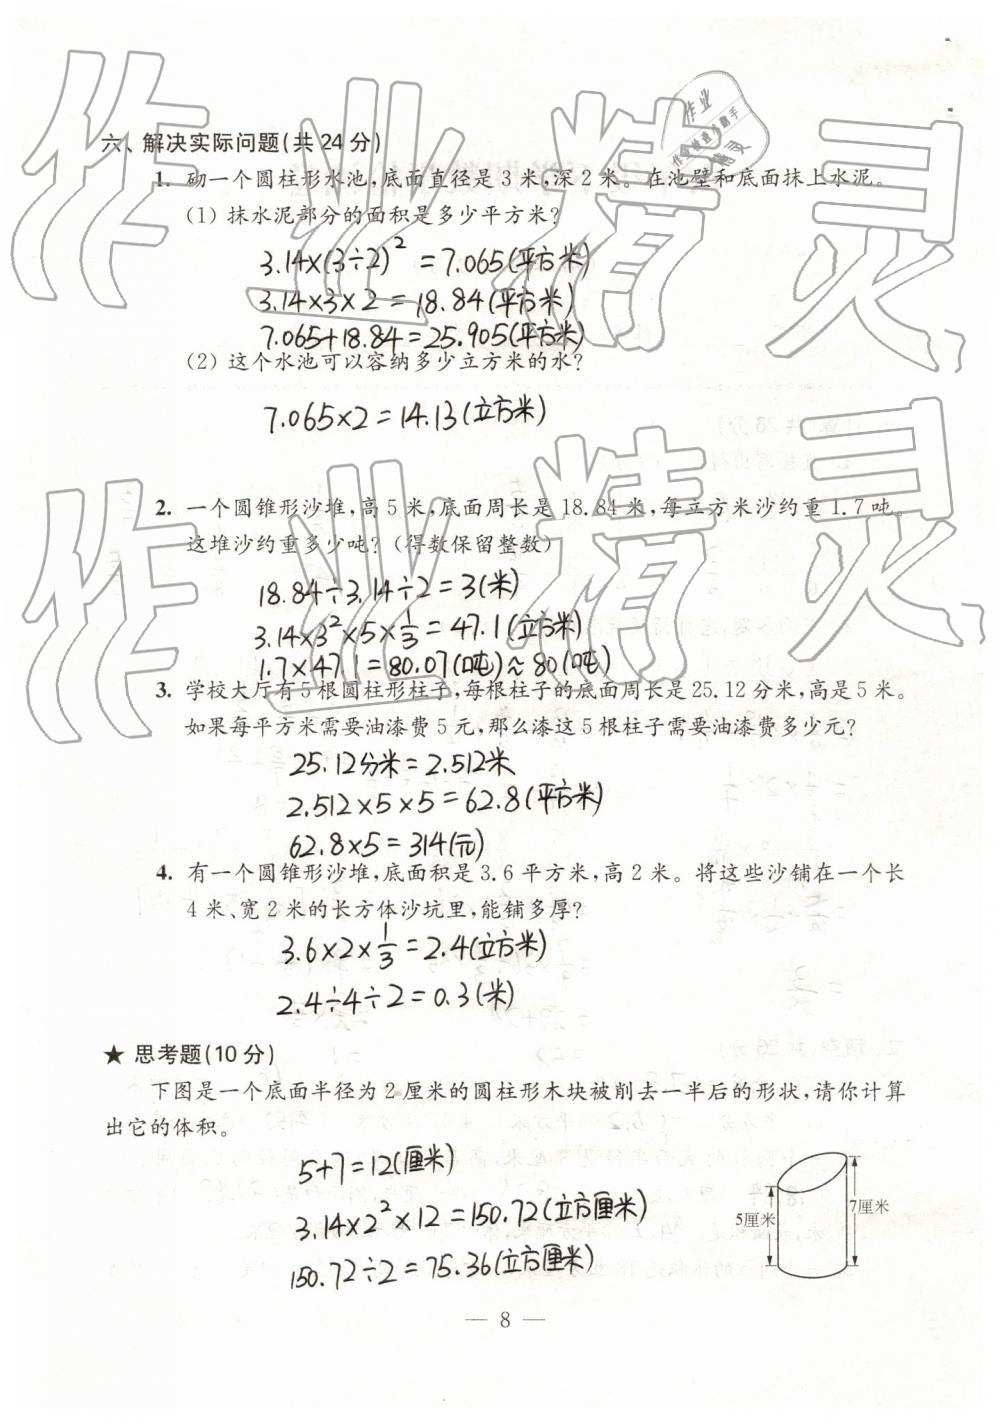 六、解决实际问题(共24分)
1. 砌一个圆柱形水池,底面直径是3米,深2米。在池壁和底面抹上水泥。
(1) 抹水泥部分的面积是多少平方米?
3.14×(3÷2)²=7.065(平方米)
3.14×3×2=18.84(平方米)
7.065+18.84=25.905(平方米)
(2) 这个水池可以容纳多少立方米的水?
7.065×2=14.13(立方米)
2. 一个圆锥形沙堆,高5米,底面周长是18.84米,每立方米沙约重1.7吨。
这堆沙约重多少吨?(得数保留整数)
18.84÷3.14÷2=3(米)
3.14×3²×5×1/3=47.1(立方米)
1.7×47.1=80.07(吨)≈80(吨)
3. 学校大厅有5根圆柱形柱子,每根柱子的底面周长是25.12分米,高是5米。
如果每平方米需要油漆费5元,那么漆这5根柱子需要油漆费多少元?
25.12分米=2.512米
2.512×5×5=62.8(平方米)
62.8×5=314(元)
4. 有一个圆锥形沙堆,底面积是3.6平方米,高2米。将这些沙铺在一个长
4米、宽2米的长方体沙坑里,能铺多厚?
3.6×2×1/3=2.4(立方米)
2.4÷4÷2=0.3(米)
★ 思考题(10分)
下图是一个底面半径为2厘米的圆柱形木块被削去一半后的形状,请你计算
出它的体积。
5+7=12(厘米)
3.14×2²×12=150.72(立方厘米)
150.72÷2=75.36(立方厘米)
5厘米
7厘米
— 8 —
作业精灵
作业精灵